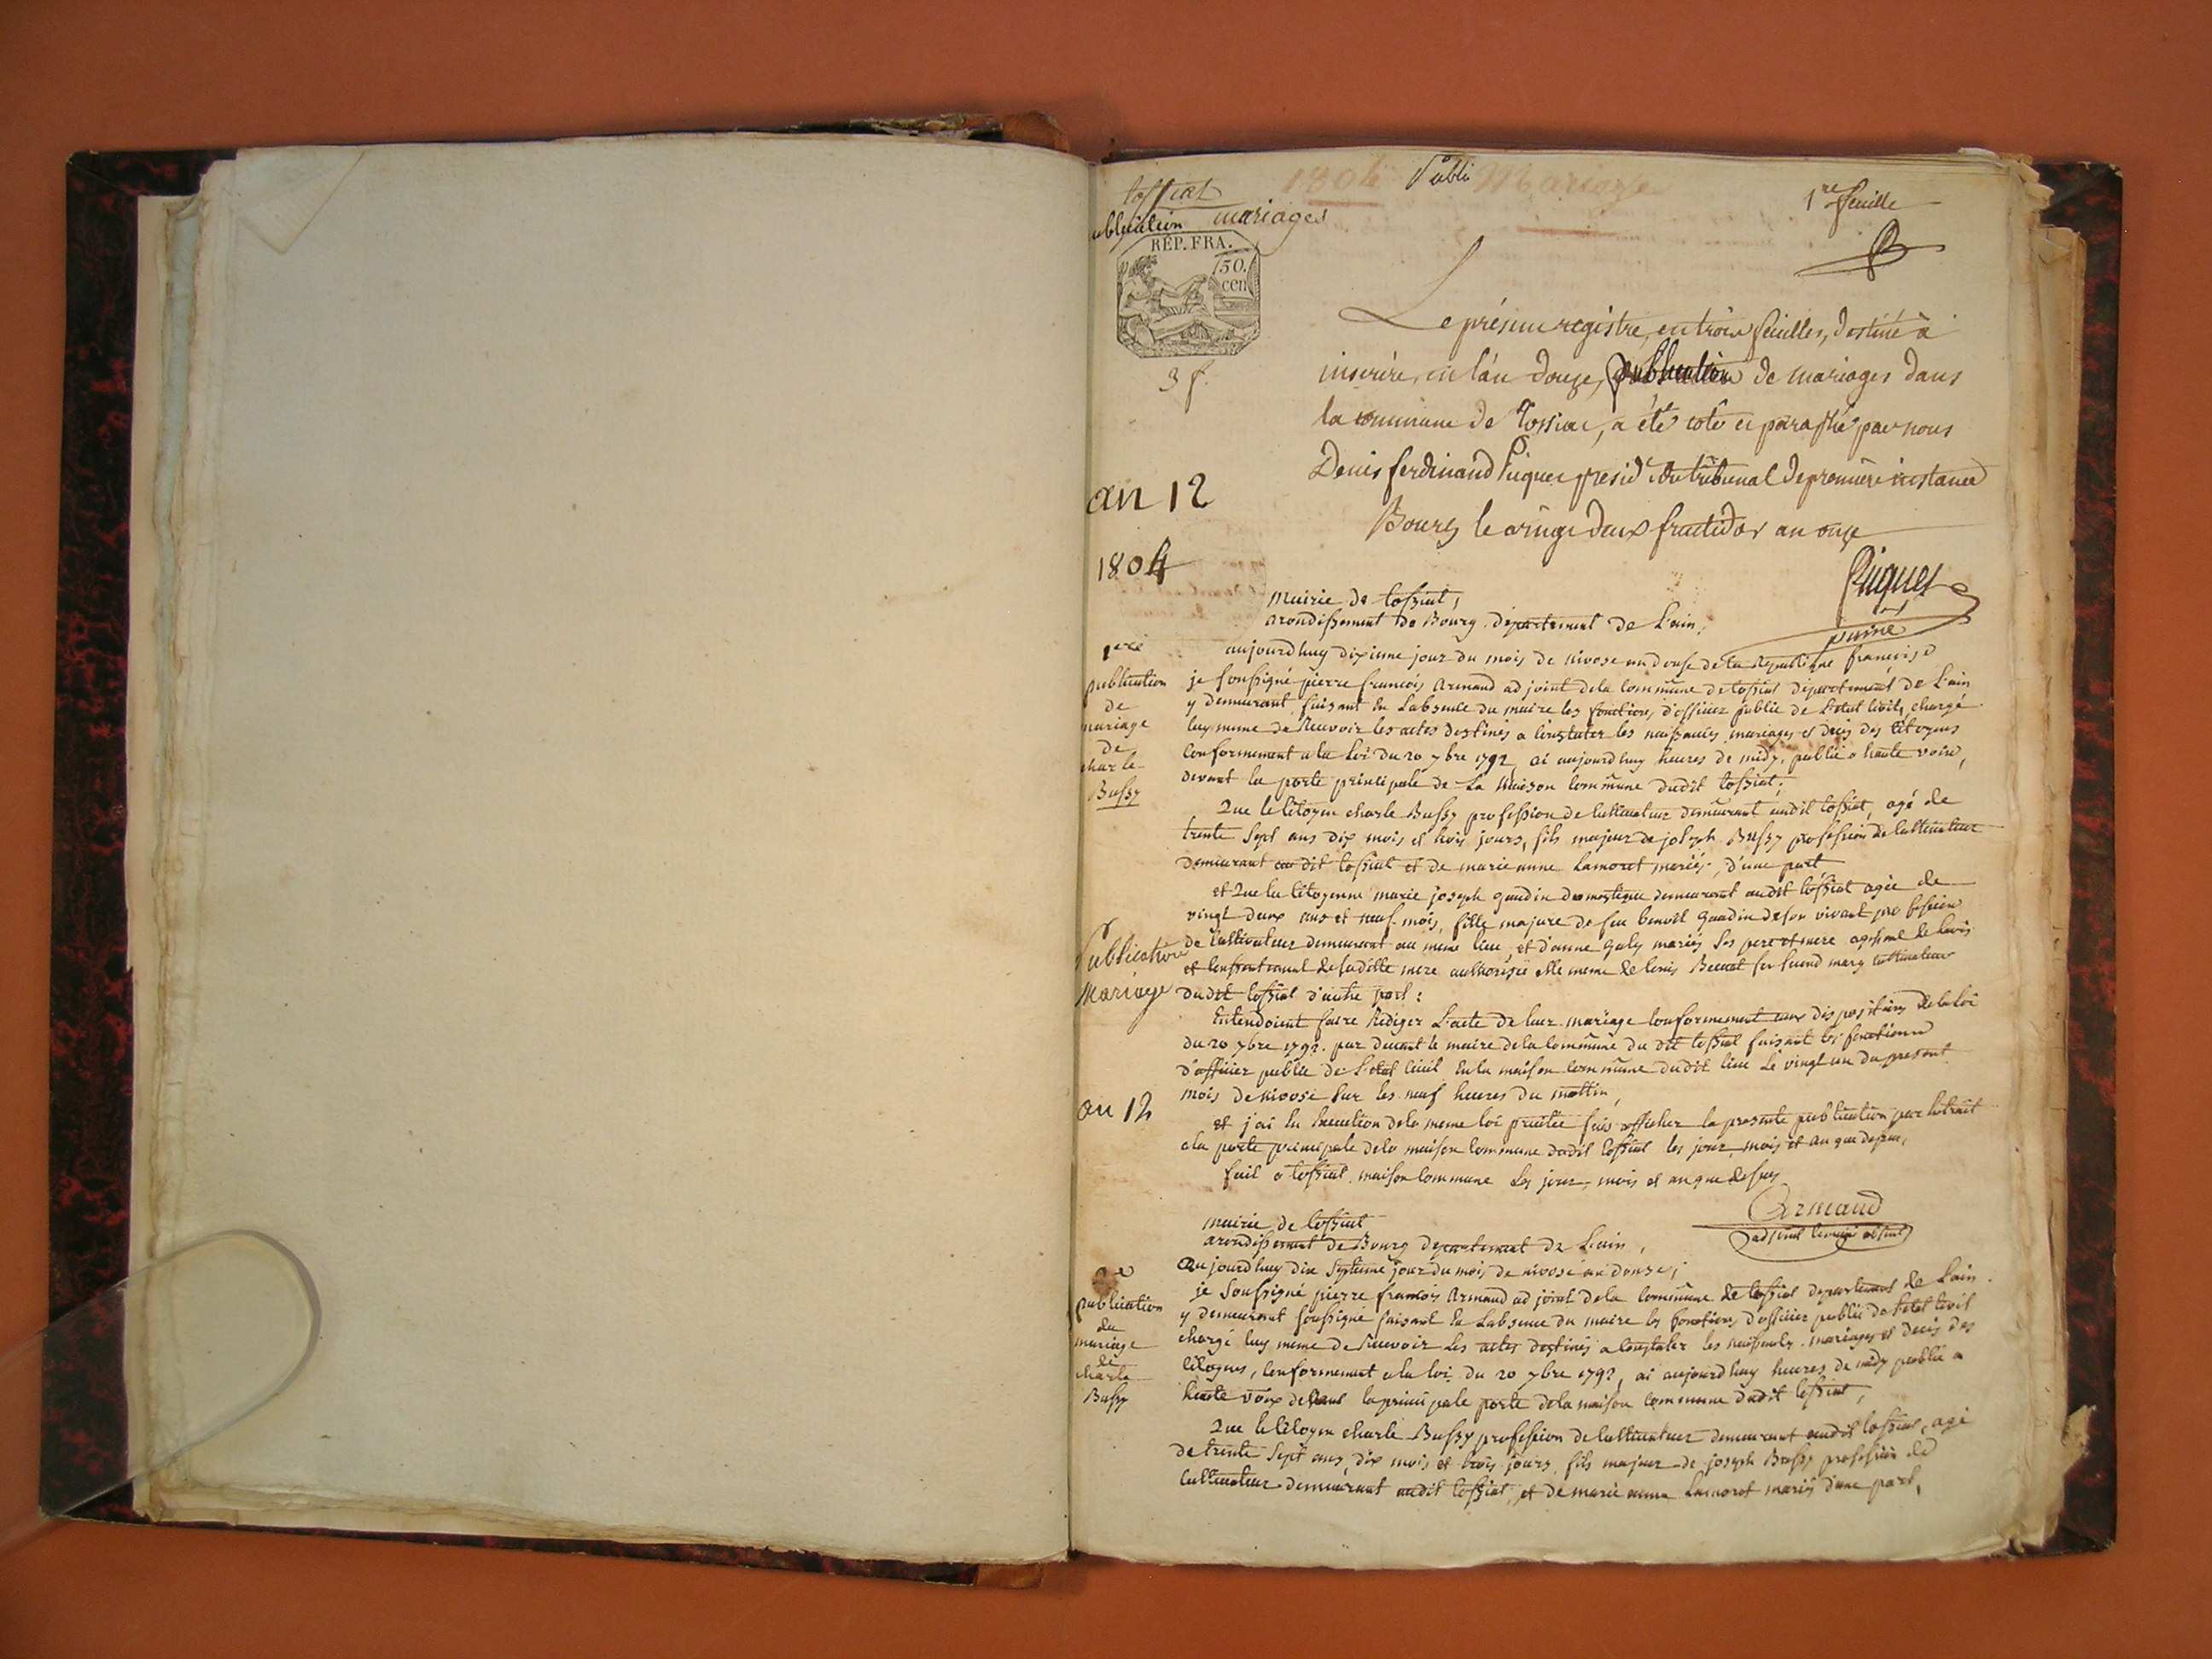 tossiat
ublication mariages
RÉP. FRA.
50.
cen
3 f.
1804 Publi Mariage
1re feuille
Le présent registre, en trois feuilles, destiné à
inscrire, en l'an douze, publication de mariages dans
la commune de Tossiat, a été coté et paraphé par nous
Denis ferdinand Piquet presidt du tribunal de premiere instance
Bourg le vingt deux fructidor an onze
Piquet
puiné
an 12
1804
Mairie de tossiat,
arondissement de Bourg departement de L'ain,
1ere
publication
de
mariage
de
charle
Bussy
aujourdhuy dixieme jour du mois de nivose an douse de la Republique françoise
je soussigné pierre françois Armand adjoint de la commune de tossiat departement de L'ain
y demeurant, faisant en L'absence du maire les fonctions d'officier public de L'etat civil, chargé
luy meme de Recevoir les actes destinés a constater les naissances mariages et deces des citoyens
conformement a la loi du 20 7bre 1792, ai aujourdhuy heures de midy, publié a haute voix,
devant la porte principale de La Maison commune dudit tossiat;
Que le citoyen charle Bussy profession de cultivateur demeurant audit tossiat, agé de
trente sept ans dix mois et trois jours, fils majeur de joseph Bussy profession de cultivateur
demeurant au dit tossiat et de marie anne Lamoret mariés, d'une part
et Que la citoyenne marie joseph gaudin domestique demeurant audit tossiat agée de
vingt deux ans et neuf mois, fille majeure de feu benoit gaudin de son vivant profession
de cultivateur demeurant au meme lieu, et d'anne galy mariés ses pere et mere
et de sadite mere authorisée elle meme de Louis son second mary cultivateur
dudit tossiat d'autre part:
Publication
Mariage
Entendoient faire Rediger L'acte de leur mariage conformement aux dispositions de la loi
du 20 7bre 1792. par devant le maire de la commune du dit tossiat faisant les fonctions
d'officier public de L'etat civil en la maison commune dudit lieu Le vingt un du present
mois de nivose sur les neuf heures du mattin,
an 12
et j'ai en Execution de la meme loi precitée fais afficher la presente publication par Extrait
a la porte principale de la maison commune dudit tossiat les jour, mois et an que dessus,
fait a tossiat maison commune Les jour, mois et an que dessus
Armand
adjoint le maire absent
mairie de tossiat
arondissement de Bourg departement de L'ain,
2e
publication
du
mariage
de
charle
Bussy
Aujourdhuy dix septieme jour du mois de nivose an douse;
je soussigné pierre françois Armand adjoint de la commune de tossiat departement de L'ain.
y demeurant soussigné faisant en L'absence du maire les fonctions d'officier public de L'etat civil
chargé luy meme de Recevoir Les actes destinés a constater les naissances mariages et deces des
citoyens, conformement a la loi du 20 7bre 1792, ai aujourdhuy heures de midy publié a
haute voix devant la principale porte de la maison commune dudit tossiat,
Que le citoyen charle Bussy profession de cultivateur demeurant audit tossiat, agé
de trente sept ans, dix mois et trois jours, fils majeur de joseph Bussy profession de
cultivateur demeurant audit tossiat, et de marie anne Lamoret mariés d'une part,